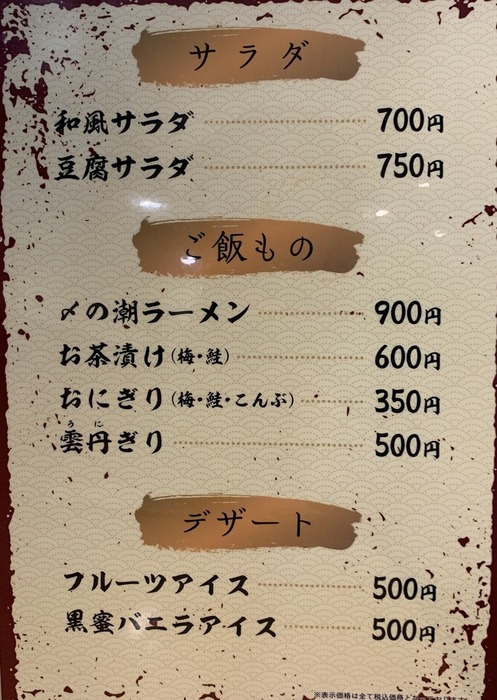 サラダ
和風サラダ 700円
豆腐サラダ 750円
ご飯もの
〆の潮ラーメン 900円
お茶漬け(梅・鮭) 600円
おにぎり(梅・鮭・こんぶ) 350円
うに
雲丹ぎり 500円
デザート
フルーツアイス 500円
黒蜜バエラアイス 500円
※表示価格は全て税込価格と